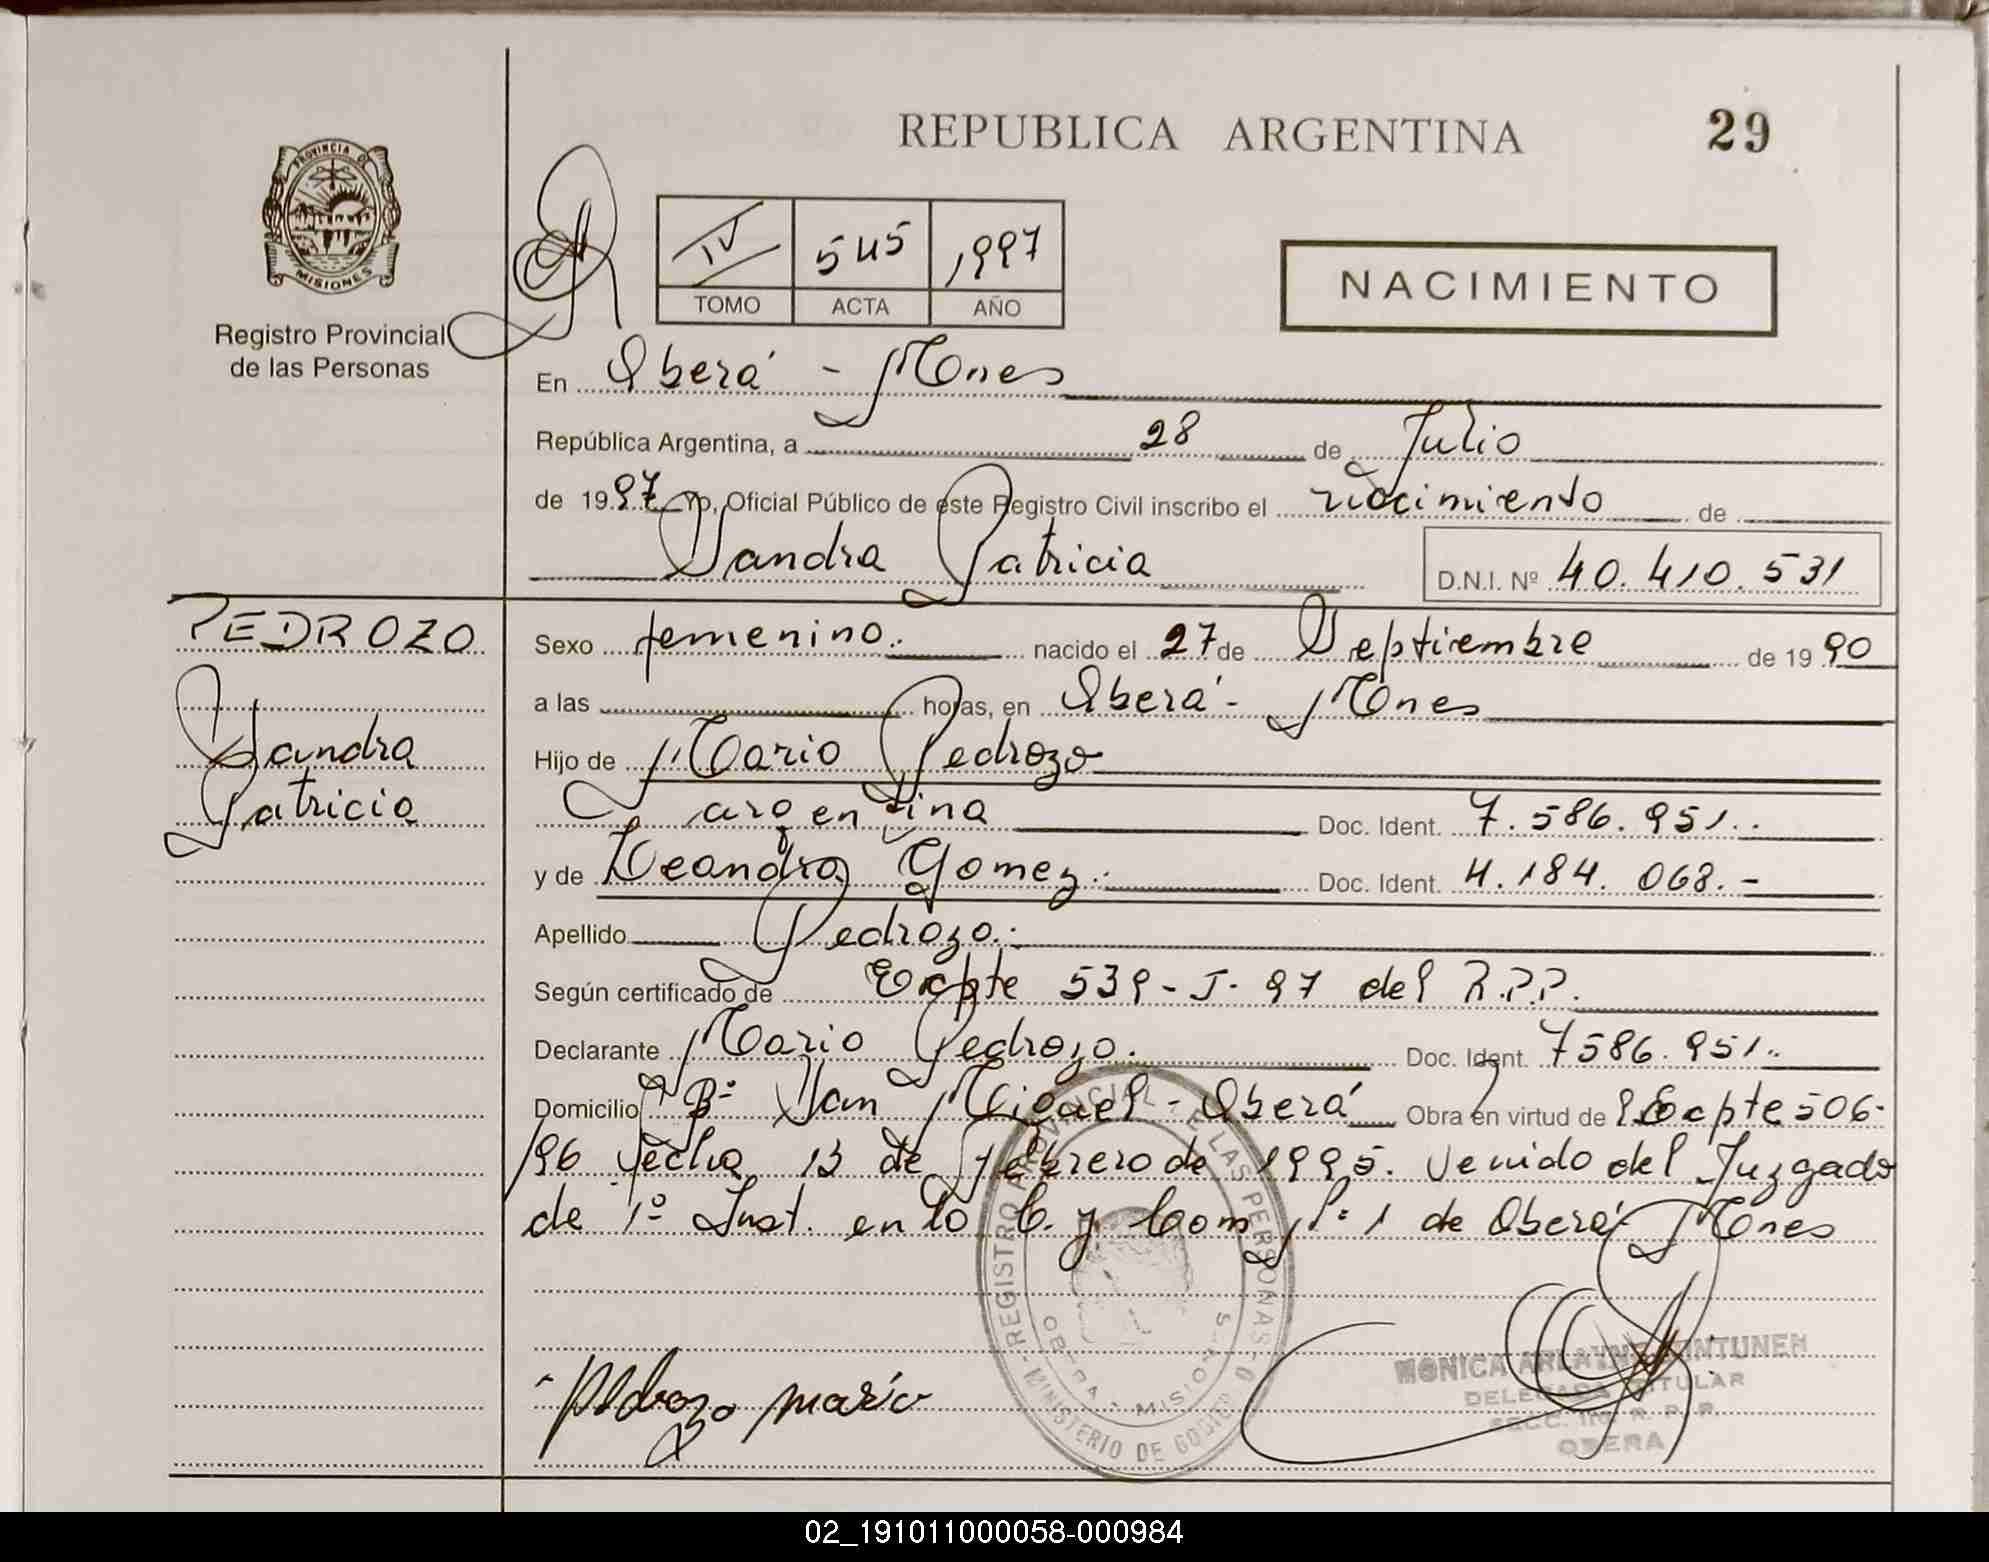 REPUBLICA ARGENTINA
29
PROVINCIA D
MISIONES
Registro Provincial
de las Personas
IV 545 1997
TOMO ACTA AÑO
NACIMIENTO
En Oberá - Mnes
República Argentina, a 28 de Julio
de 1997 Yo, Oficial Público de este Registro Civil inscribo el nacimiento de
Sandra Patricia D.N.I. Nº 40.410.531
PEDROZO
Sandra
Patricia
Sexo femenino. nacido el 27 de Septiembre de 1990
a las horas, en Oberá - Mnes
Hijo de Mario Pedrozo
argentina Doc. Ident. 7.586.951.
y de Leandra Gomez. Doc. Ident. 4.184.068.-
Apellido Pedrozo.
Según certificado de Expte 539-J-97 del R.P.P.
Declarante Mario Pedrozo. Doc. Ident. 7586.951.
Domicilio Bº San Miguel - Oberá Obra en virtud de Expte 506-
/96 fecha 13 de Febrero de 1995. Venido del Juzgado
de 1º Inst. en lo C. y Com Nº 1 de Oberá Mnes
REGISTRO PROVINCIAL DE LAS PERSONAS
MINISTERIO DE GOBIERNO
OBERA - MISIONES
Pedrozo mario
MONICA
DELEGADA TITULAR
SECC. R. P. P.
OBERA
02_191011000058-000984